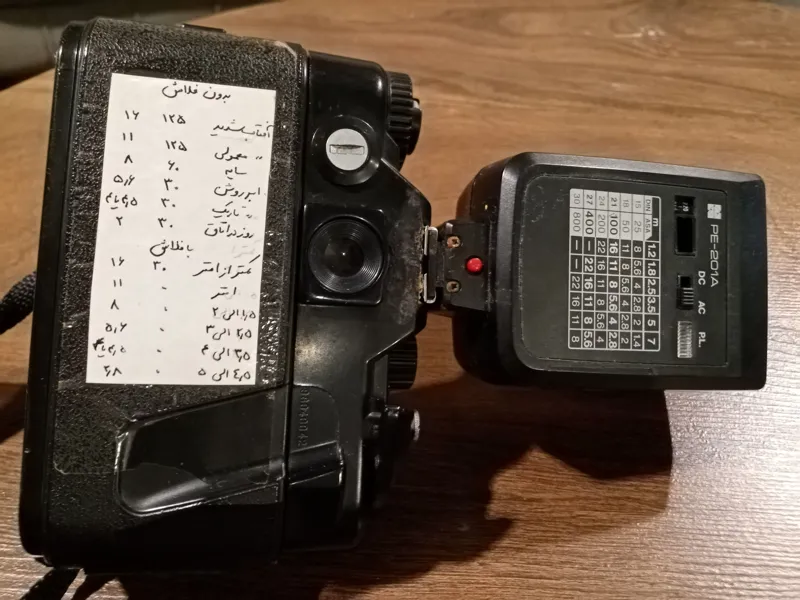 بدون فلاش
آفتاب شدید ۱۲۵ ۱۶
〃 معمولی ۱۲۵ ۱۱
سایه ۶۰ ۸
ابر روشن ۳۰ ۵٫۶
〃 تاریک ۳۰
روز در اتاق ۳۰ ۲
با فلاش
کمتر از ۱ متر ۳۰ ۱۶
۱ متر 〃 ۱۱
۱٫۵ الی ۲ 〃 ۸
۲٫۵ الی ۳ 〃 ۵٫۶
۳٫۵ الی ۴ 〃
۴٫۵ الی ۵ 〃 ۲٫۸
PE-201A
DC AC P.L.
m 1.2 1.8 2.5 3.5 5 7
DIN ASA
15 25 8 5.6 4 2.8 2 1.4
18 50 11 8 5.6 4 2.8 2
21 100 16 11 8 5.6 4 2.8
24 200 22 16 11 8 5.6 4
27 400 — 22 16 11 8 5.6
30 800 — — 22 16 11 8